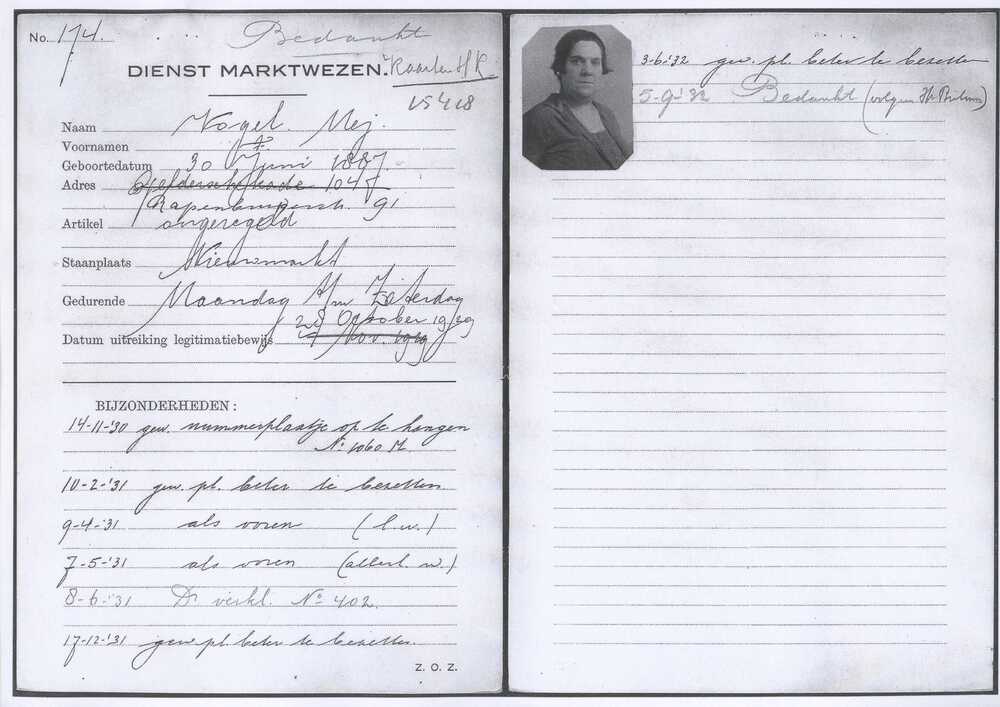 No. 174.
Bedankt
DIENST MARKTWEZEN.
Kaarten H R
V5418
Naam Vogel. Mej.
Voornamen F.
Geboortedatum 30 Juni 1887
Adres 104
Rapenburgerstr. 91
Artikel ongeregeld
Staanplaats Nieuwmarkt
Gedurende Maandag t/m Zaterdag
28 October 1929
Datum uitreiking legitimatiebewijs Nov. 1929
BIJZONDERHEDEN:
14-11-'30 gew. nummerplaatje op te hangen
No 1060 M.
10-2-'31 gew. pl. beter te bezetten
9-4-'31 als voren (l.w.)
7-5-'31 als voren (allerl. w.)
8-6-'31 Dr verkl. No 402.
17-12-'31 gew. pl. beter te bezetten
Z. O. Z.
3-6-'32 gew. pl. beter te bezetten
5-9-'32 Bedankt (volgens Hr